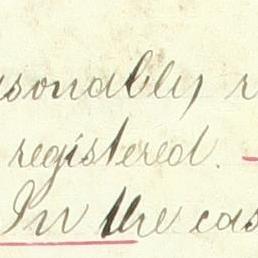 asonably r
registered.
In the cas